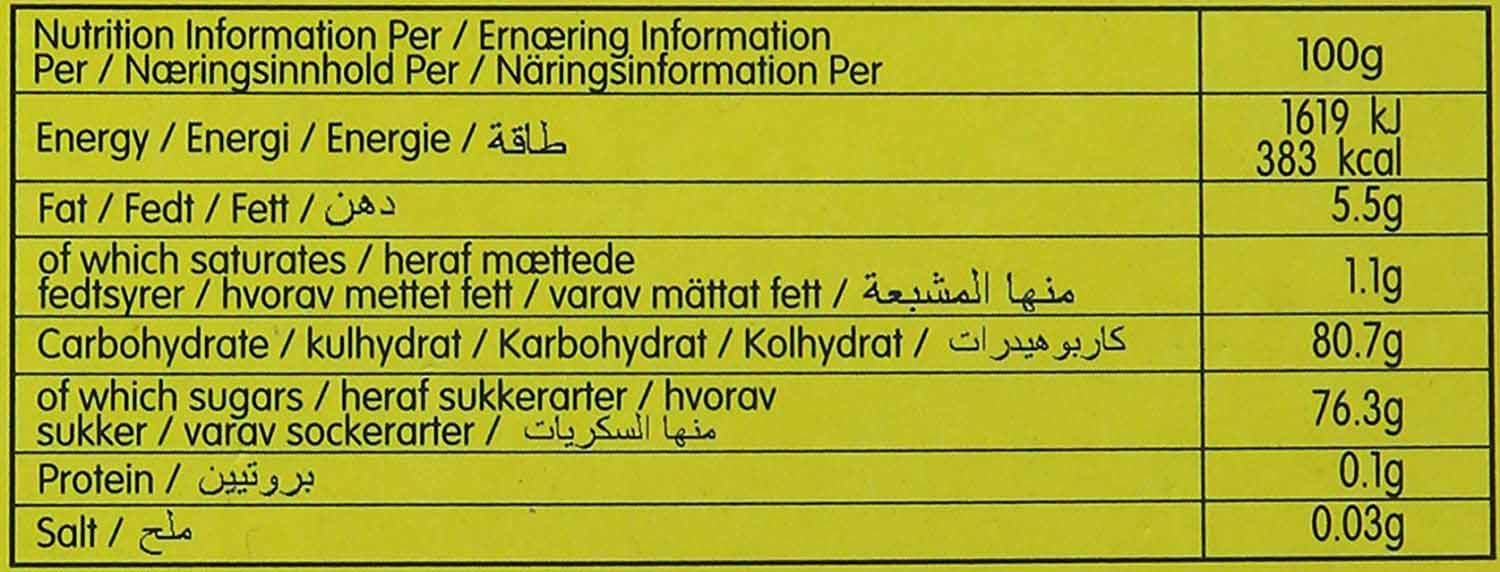 Nutrition Information Per / Ernæring Information
Per / Næringsinnhold Per / Näringsinformation Per
100g
Energy / Energi / Energie / طاقة
1619 kJ
383 kcal
Fat / Fedt / Fett / دهن
5.5g
of which saturates / heraf mættede
fedtsyrer / hvorav mettet fett / varav mättat fett / منها المشبعة
1.1g
Carbohydrate / kulhydrat / Karbohydrat / Kolhydrat / كاربوهيدرات
80.7g
of which sugars / heraf sukkerarter / hvorav
sukker / varav sockerarter / منها السكريات
76.3g
Protein / بروتيين
0.1g
Salt / ملح
0.03g